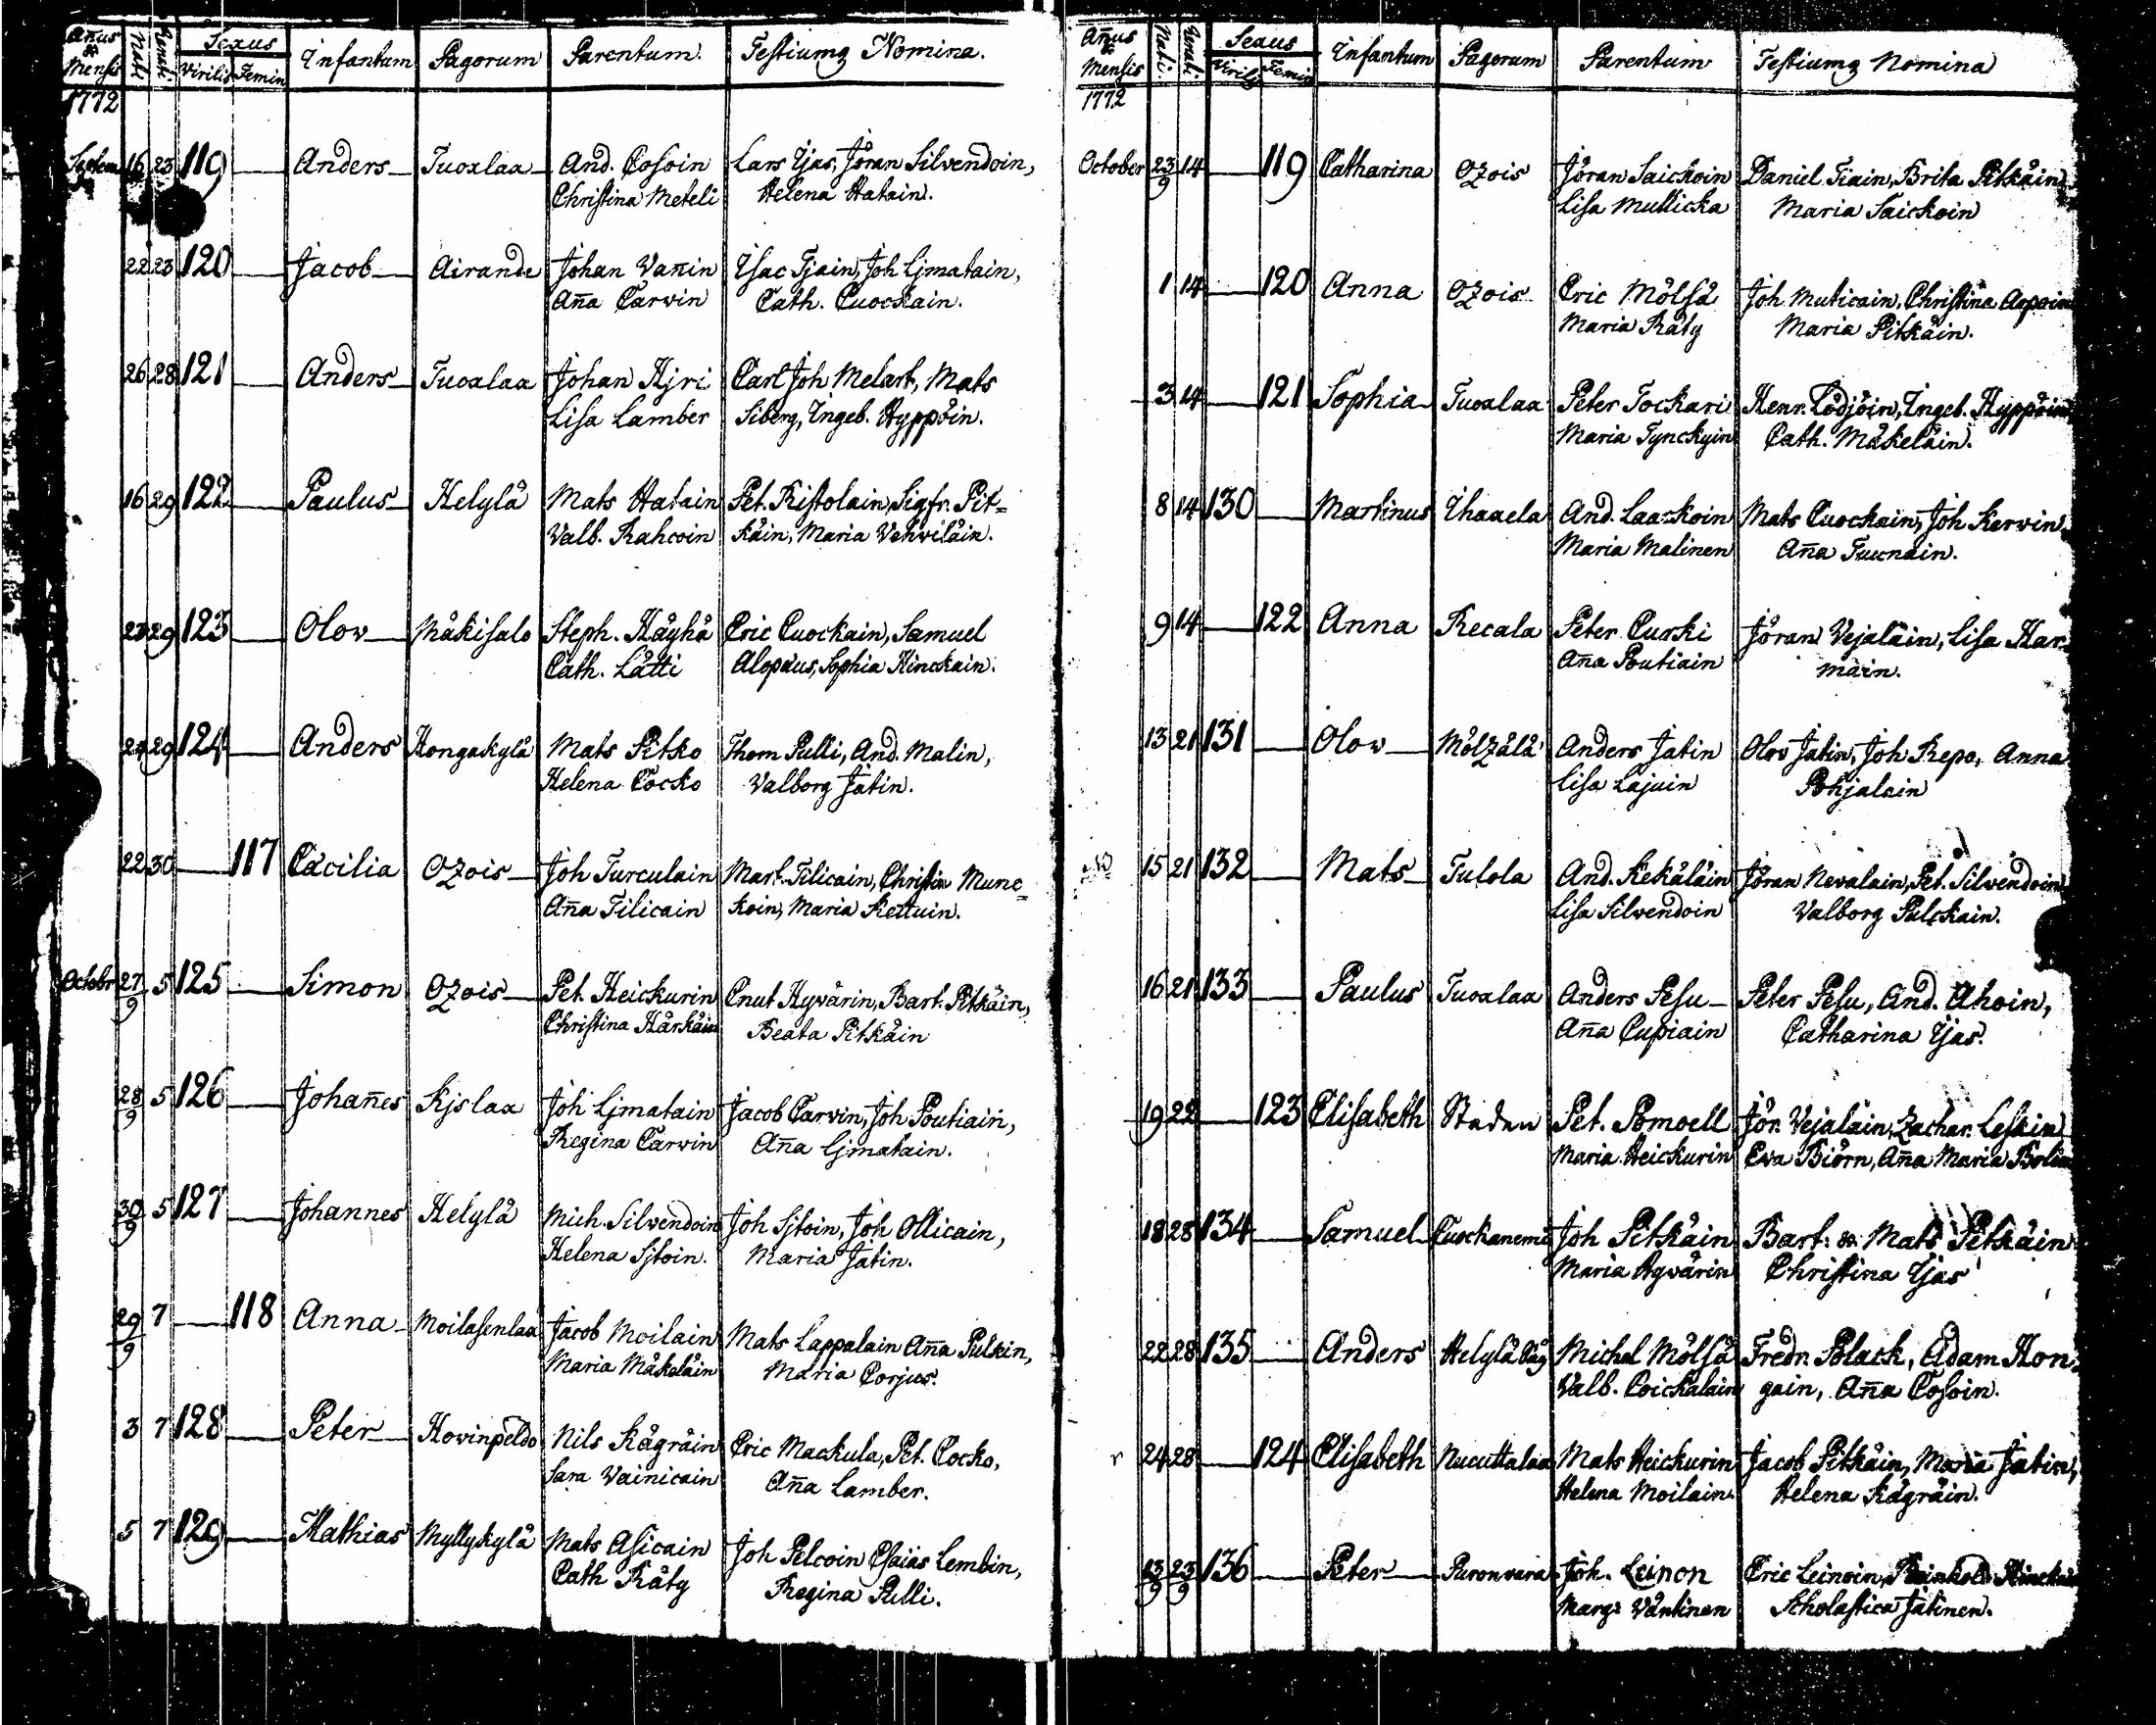 Anus & Mensis Nati Renati Sexus Virilis Femin Infantum Pagorum Parentum Testiumq Nomina.
1772
16 23 119 Anders Tuoxlaa And. Cosoin Lars Ijas, Jöran Silvendoin,
Christina Meteli Helena Hatain.
22 23 120 Jacob Airande Johan Vanin Isac Tjain, Joh Ljmatain,
Aña Carwin Cath. Cuockain.
26 28 121 Anders Tuoxlaa Johan Kjri Carl Joh Melart, Mats
Lisa Lamber Siberg, Ingeb. Hyppöin.
16 29 122 Paulus Helylä Mats Hatain Pet. Ristolain, Sigfr. Pit=
Valb. Rahcoin käin, Maria Vehviläin.
23 29 123 Olov Mäkisalo Steph. Häyhä Eric Cuockain, Samuel
Cath. Lätti Alopæus, Sophia Hinckain.
24 29 124 Anders Hongakylä Mats Pitko Thom Pulli, And. Malin,
Helena Cocko Valborg Jätin.
22 30 117 Cæcilia Ozois Joh Turculain Mart. Tilicain, Christin Munc=
Aña Tilicain koin, Maria Kettuin.
Octobr 27/9 5 125 Simon Ozois Pet. Heickurin Cnut Hyvärin, Bart. Pitkäin,
Christina Härkäin Beata Pitkäin
28/9 5 126 Johañes Kjslax Joh Ljmatain Jacob Carvin, Joh Poutiain,
Regina Carwin Aña Ljmatain.
30/9 5 127 Johannes Helylä Mich. Silvendoin Joh Sjtoin, Joh Ollicain,
Helena Sjtoin. Maria Jätin.
29/9 7 118 Anna Moilasenlaa Jacob Moilain Mats Lappalain Aña Pulkin,
Maria Mäkeläin Maria Corjus.
3 7 128 Peter Hovinpeldo Nils Kägräin Eric Mackula, Pet. Cocko,
Sara Vainicain Aña Lamber.
5 7 129 Mathias Myllykylä Mats Asicain Joh Pelcoin Esaias Lembin,
Cath Räty Regina Pulli.
Añus & Mensis Nati. Renati. Sexus Virilis Femin Infantum Pagorum Parentum Testiumq Nomina
1772
October 23/9 14 119 Catharina Ozois Jöran Saickoin Daniel Tiain, Brita Pitkäin
Lisa Mullicka Maria Saickoin
1 14 120 Anna Ozois Eric Mölsä Joh Muticain, Christina
Maria Räty Maria Pitkäin.
3 14 121 Sophia Tuoxlaa Peter Tockari Henr. Lödjöin, Ingeb. Hyppöin,
Maria Tynckyin Cath. Mäkeläin.
8 14 130 Martinus Ihaxela And. Laackoin Mats Cuockain, Joh Kerwin
Maria Malinen Aña Tuunain.
9 14 122 Anna Recala Peter Curki Jöran Vejaläin, Lisa Har=
Aña Poutiain main.
13 21 131 Olov Mölzälä Anders Jatin Olov Jatin, Joh Repo, Anna
Lisa Lajuin Pohjalain
15 21 132 Mats Tulola And. Kekäläin Jöran Nevalain, Pet. Silvendoin
Lisa Silvendoin Valborg Pulckain.
16 21 133 Paulus Tuoxlaa Anders Pesu Peter Pesu, And. Ahoin,
Aña Cupiain Catharina Ijas.
19 22 123 Elisabeth Staden Pet. Pomoell Jör. Vejaläin, Zachar. Leskin
Maria Heickurin Eva Biörn, Aña Maria
18 28 134 Samuel Cuockanemi Joh Pitkäin Bart: & Mats Pitkäin
Maria Hyvärin Christina Ijas
22 28 135 Anders Helylä Michel Mölsä Fredr Polack, Adam Hon=
Valb. Coickalain gain, Aña Cosoin.
24 28 124 Elisabeth Nucuttalaa Mats Heickurin Jacob Pitkäin, Maria Jatin,
Helena Moilain. Helena Kägräin.
23/9 23/9 136 Peter Puronvara Joh. Leinon Eric Leinoin,
Marg: Väntinen Scholastica Jätinen.